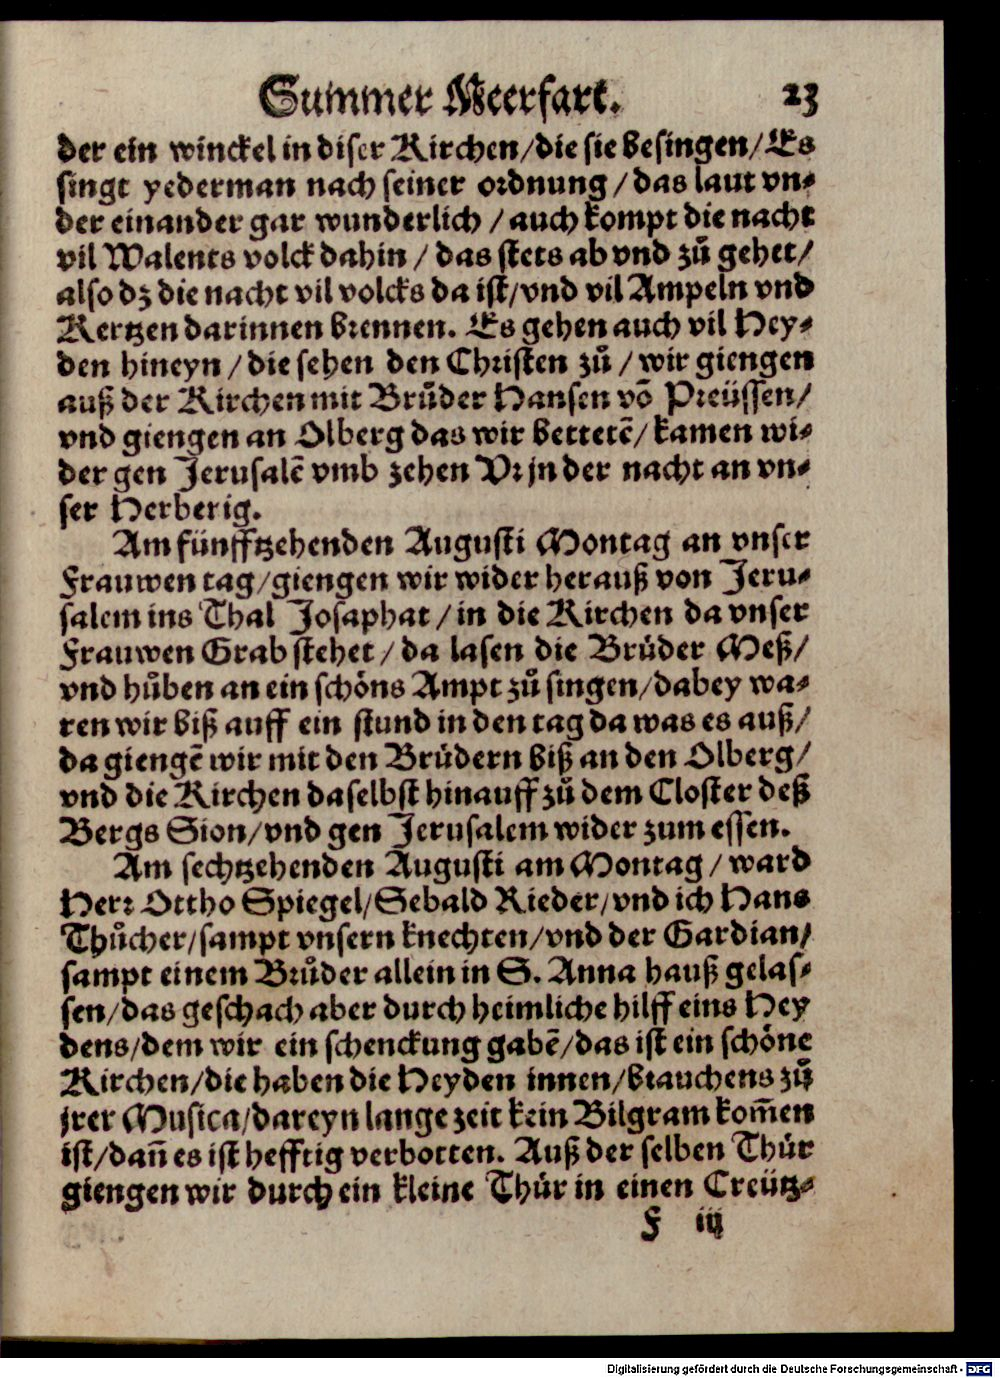 Summer Meerfart. 23
der ein winckel in diser Kirchen/die sie besingen/Es
singt yederman nach seiner ordnung/das laut vn-
der einander gar wunderlich/auch kompt die nacht
vil Walents volck dahin/das stets ab vnd zů gehet/
also dz die nacht vil volcks da ist/vnd vil Ampeln vnd
Kertzen darinnen brennen. Es gehen auch vil Hey-
den hineyn/die sehen den Christen zů/wir giengen
auß der Kirchen mit Brůder Hansen võ Preüssen/
vnd giengen an Olberg das wir bettetẽ/kamen wi-
der gen Jerusalẽ vmb zehen Vr jn der nacht an vn-
ser Herberig.
Am fünfftzehenden Augusti Montag an vnser
Frauwen tag/giengen wir wider herauß von Jeru-
salem ins Thal Josaphat/in die Kirchen da vnser
Frauwen Grab stehet/da lasen die Brüder Meß/
vnd hůben an ein schöns Ampt zů singen/dabey wa-
ren wir biß auff ein stund in den tag da was es auß/
da giengẽ wir mit den Brüdern biß an den Olberg/
vnd die Kirchen daselbst hinauff zů dem Closter deß
Bergs Sion/vnd gen Jerusalem wider zum essen.
Am sechtzehenden Augusti am Montag/ward
Herr Ottho Spiegel/Sebald Rieder/vnd ich Hans
Thůcher/sampt vnsern knechten/vnd der Gardian/
sampt einem Brůder allein in S. Anna hauß gelas-
sen/das geschach aber durch heimliche hilff eins Hey
dens/dem wir ein schenckung gabẽ/das ist ein schöne
Kirchen/die haben die Heyden innen/brauchens zů
jrer Musica/dareyn lange zeit kein Bilgram kom̃en
ist/dañ es ist hefftig verbotten. Auß der selben Thür
giengen wir durch ein kleine Thür in einen Creütz-
F iij
Digitalisierung gefördert durch die Deutsche Forschungsgemeinschaft - DFG